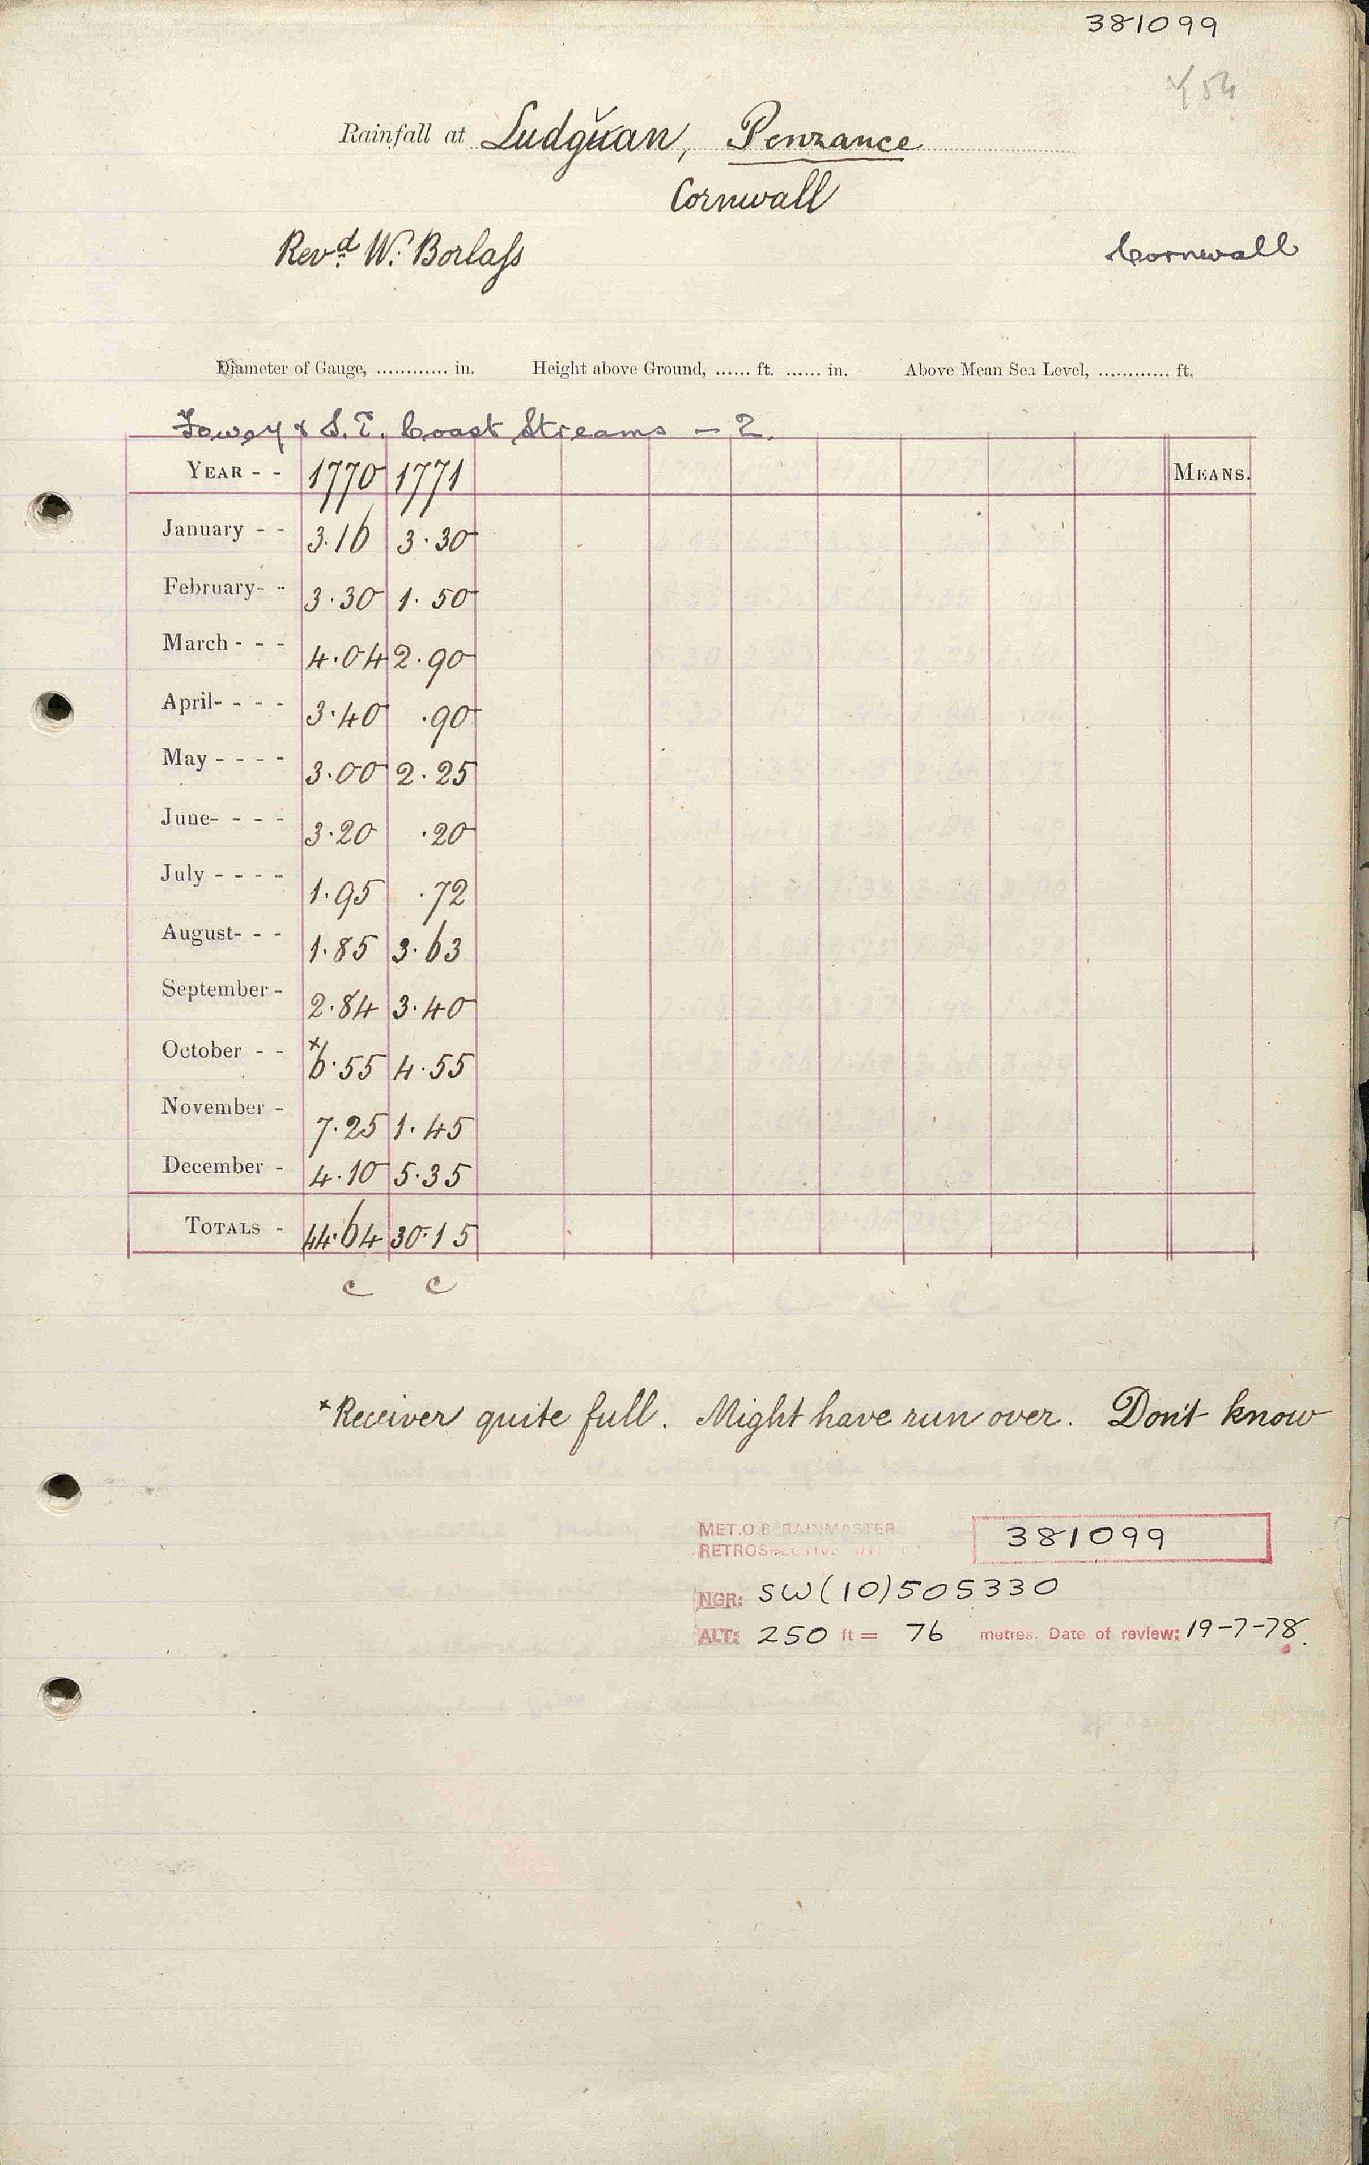 381099
54
Rainfall at Ludgvan, Penzance
Cornwall
Revd. W. Borlass
Cornwall
Diameter of Gauge, ............ in. Height above Ground, ...... ft. ...... in. Above Mean Sea Level, ............ ft.
Fowey & S.E. Coast Streams - 2.
YEAR - - 1770 1771 MEANS.
January - - 3.16 3.30
February- - 3.30 1.50
March - - - 4.04 2.90
April- - - - 3.40 .90
May - - - - 3.00 2.25
June- - - - 3.20 .20
July - - - - 1.95 .72
August- - - 1.85 3.63
September - 2.84 3.40
October - - x6.55 4.55
November - 7.25 1.45
December - 4.10 5.35
TOTALS - 44.64 30.15
c c
x Receiver quite full. Might have run over. Don't know
MET.O.8 RAINMASTER
RETROSPECTIVE
381099
NGR: SW(10)505330
ALT: 250 ft = 76 metres. Date of review: 19-7-78.